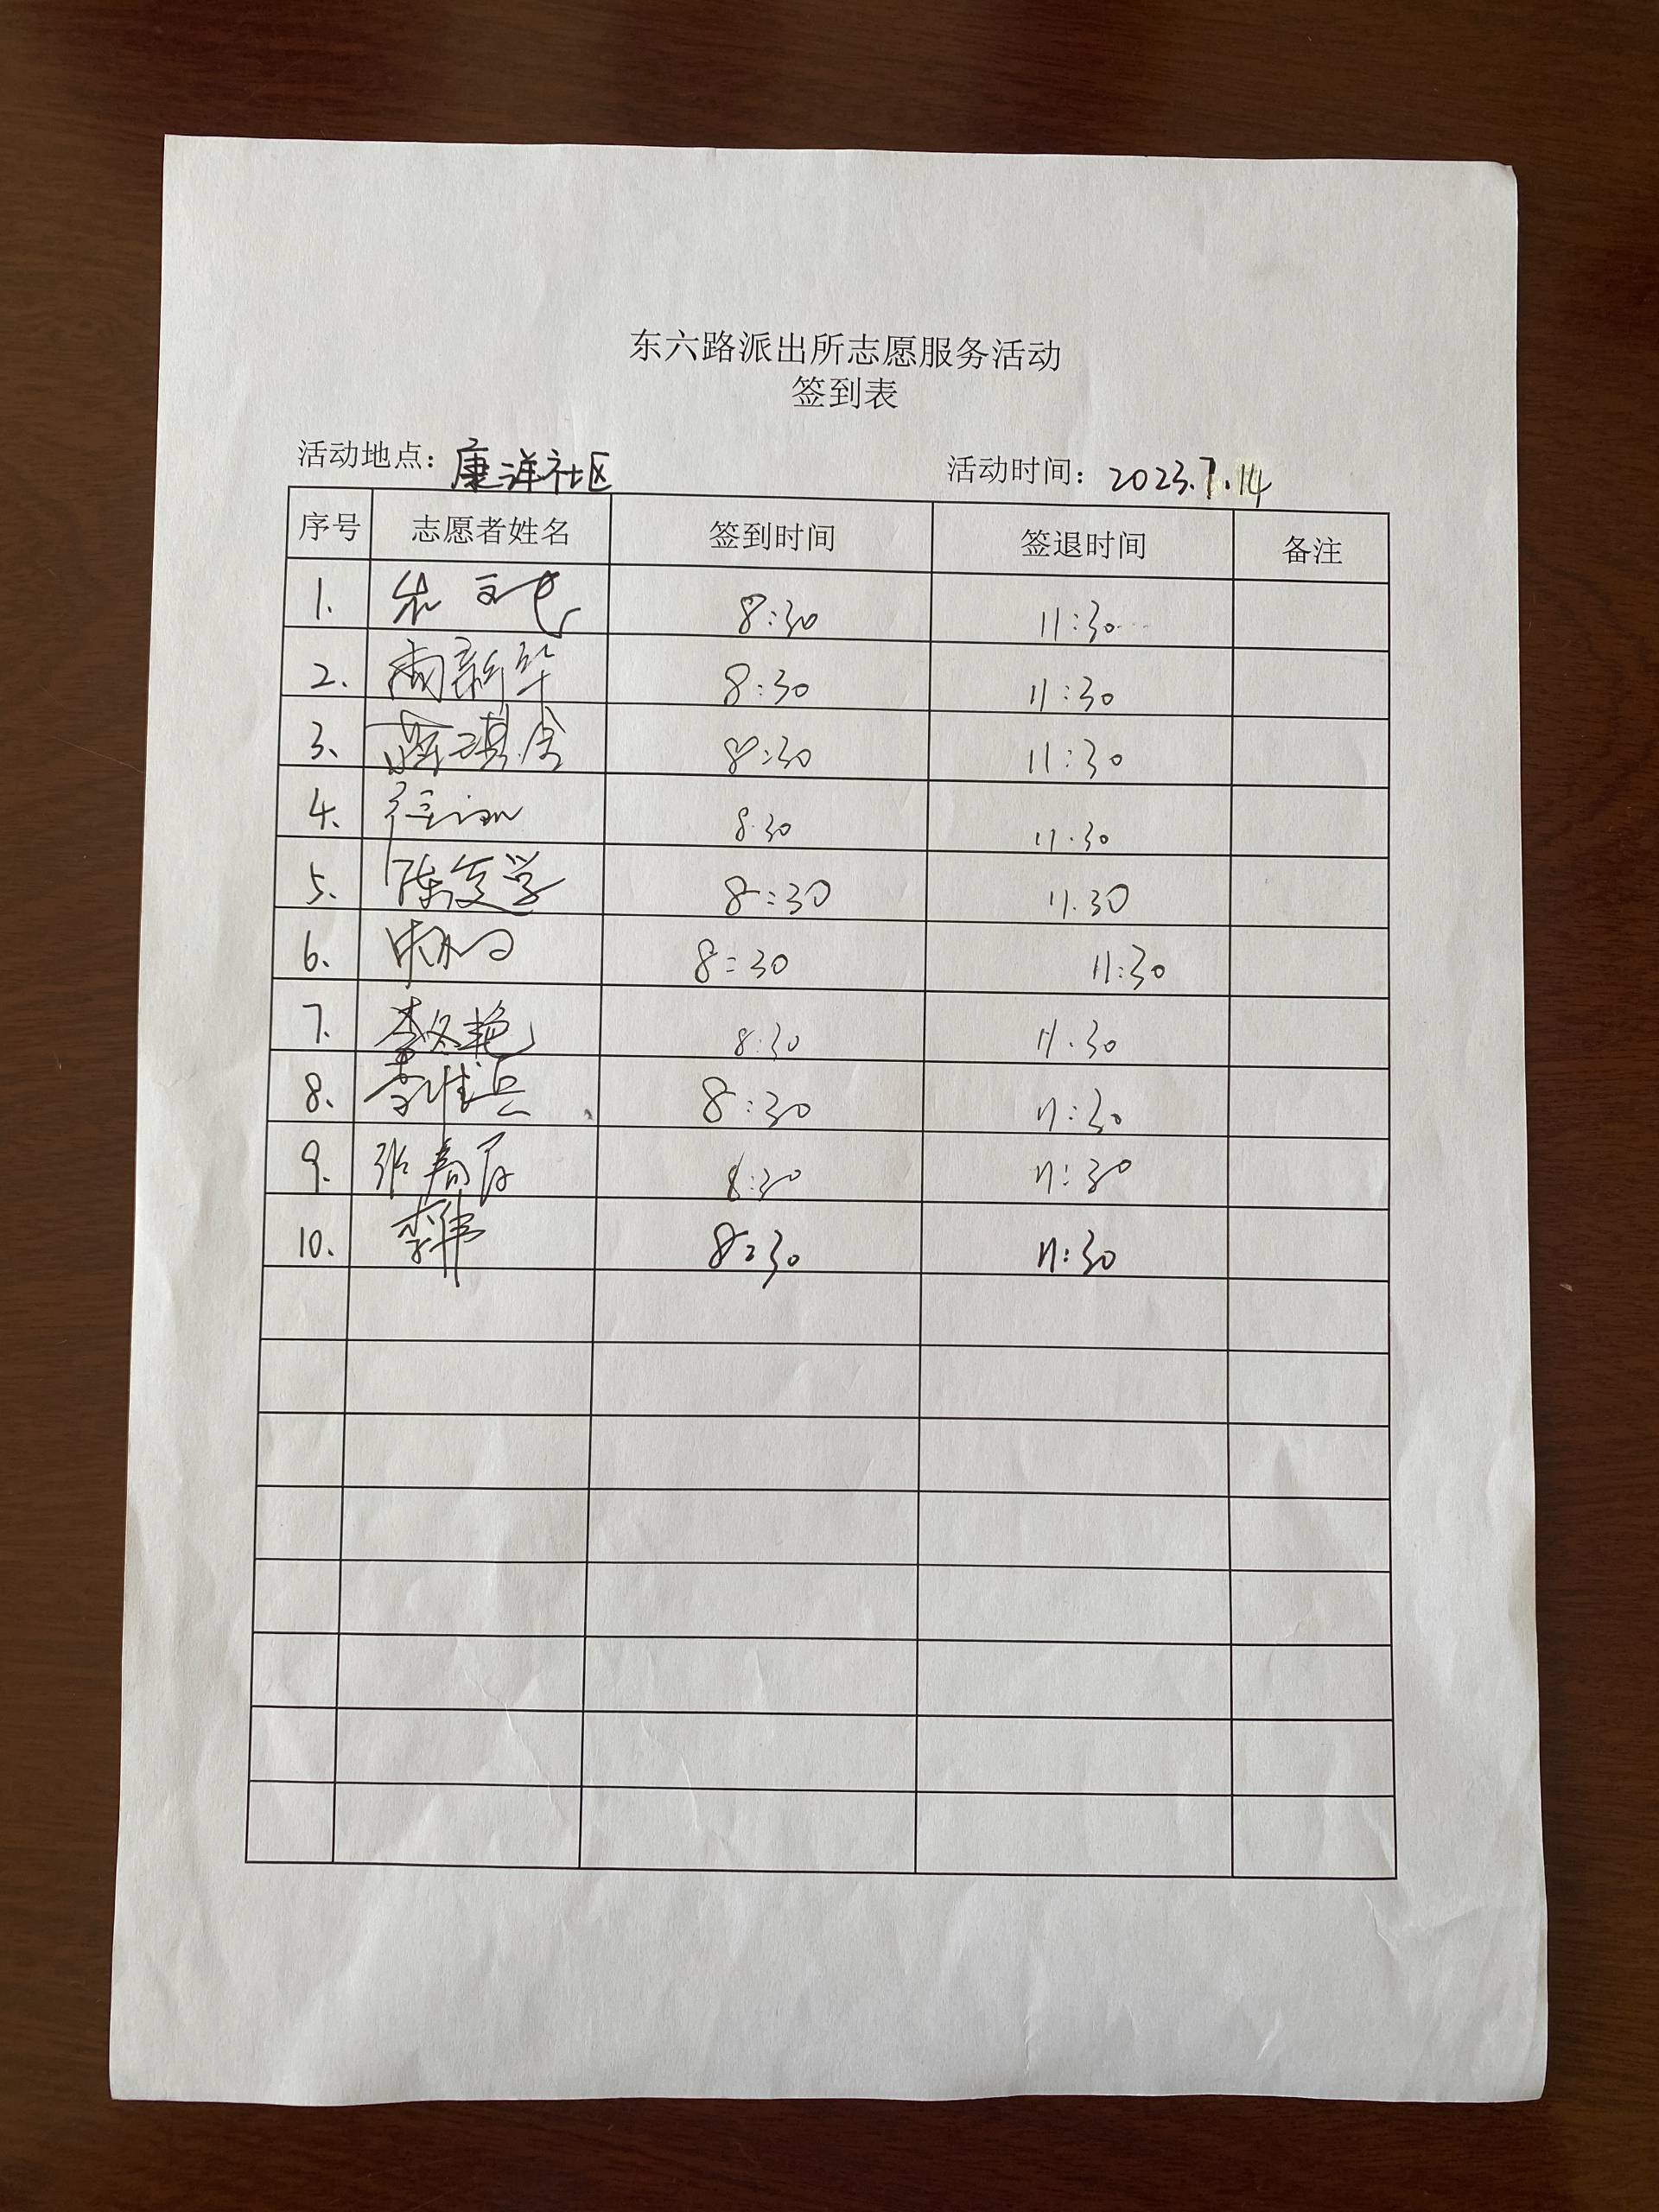 东六路派出所志愿服务活动
签到表
活动地点：康洋社区 活动时间：2023.7.14
序号 志愿者姓名 签到时间 签退时间 备注
1. 8:30 11:30
2. 尚新华 8:30 11:30
3. 8:30 11:30
4. 8:30 11:30
5. 陈复学 8:30 11.30
6. 8:30 11:30
7. 李冬艳 8:30 11.30
8. 李维兵 8:30 11:30
9. 张 8:30 11:30
10. 李伟 8:30 11:30